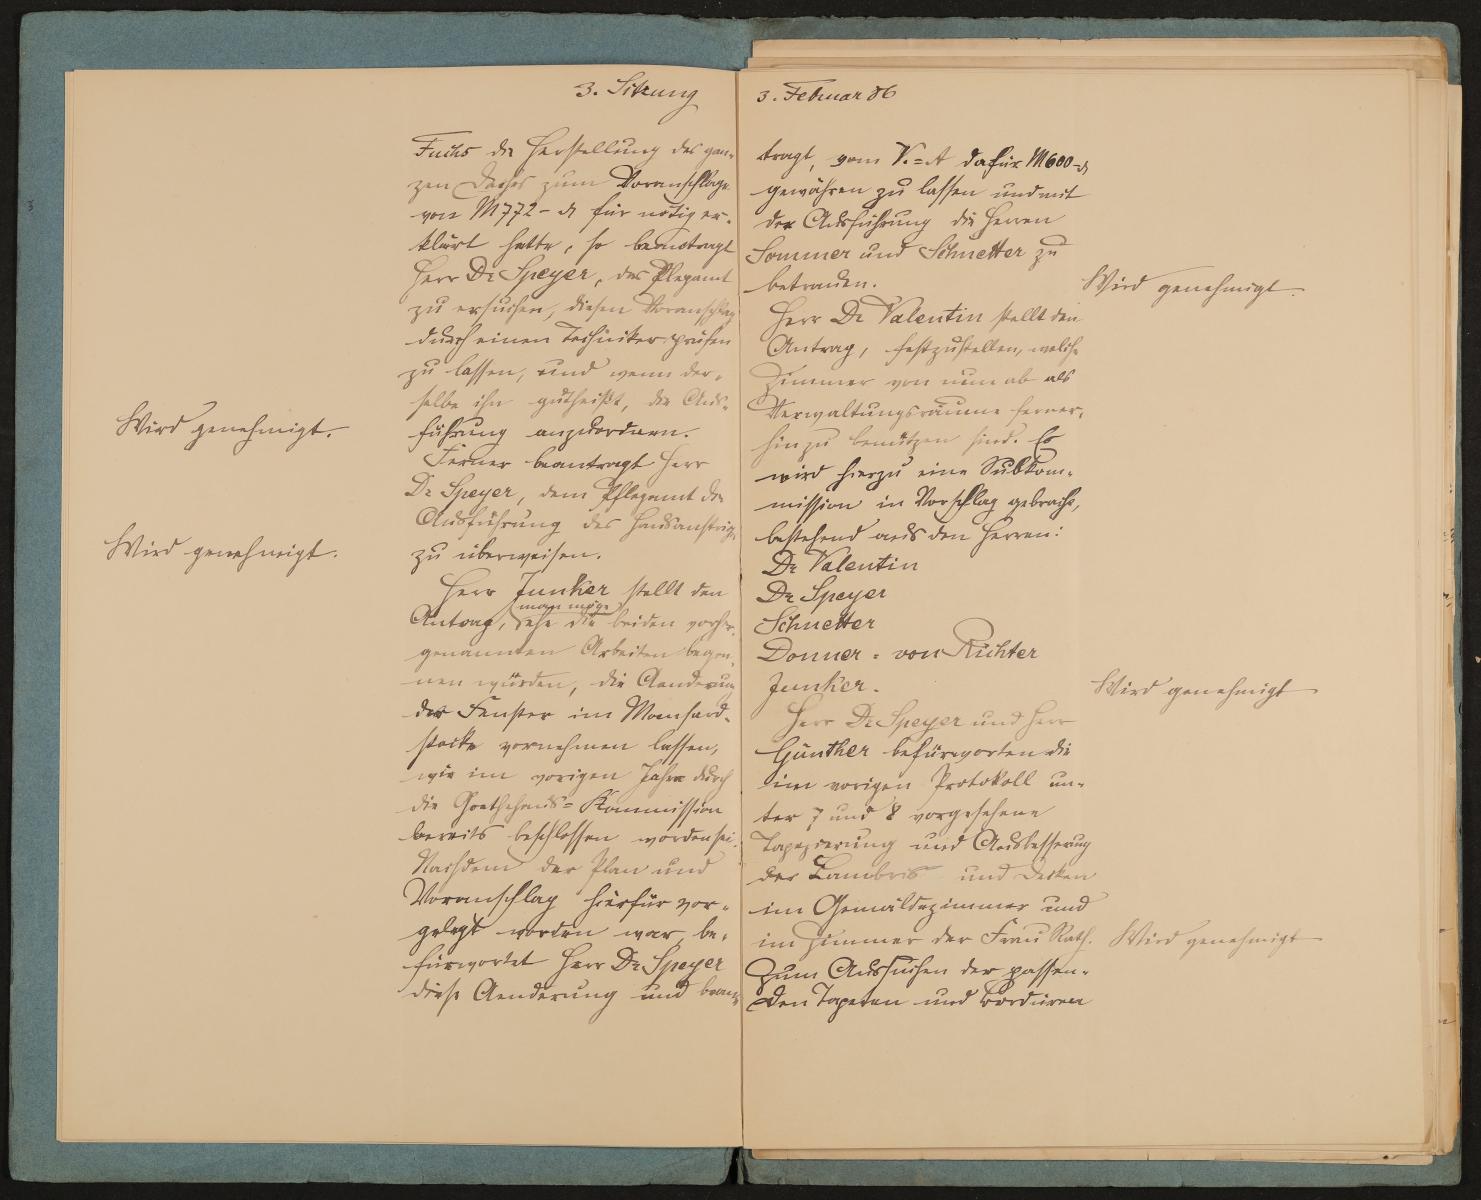 3. Sitzung
Fuchs die Herstellung des gan-
zen Daches zum Voranschlage
von M 772 - ₰ für nötig er-
klärt hatte, so beantragt
Herr Dr Speyer, das Pflegamt
zu ersuchen, diesen Voranschlag
durch einen Techniker prüfen
zu lassen, und wenn der-
selbe ihn gutheißt, die Aus-
führung anzuordnen.
Wird genehmigt.
Ferner beantragt Herr
Dr Speyer, dem Pflegamt die
Ausführung des Hausanstrichs
zu überweisen.
Wird genehmigt.
Herr Junker stellt den
man möge
Antrag, ehe die beiden vorher-
genannten Arbeiten begon-
nen würden, die Aenderung
der Fenster im Mansard-
stocke vornehmen lassen,
wie im vorigen Jahre durch
die Goethehaus-Kommission
bereits beschlossen worden sei.
Nachdem der Plan und
Voranschlag hierfür vor-
gelegt worden war, be-
fürwortet Herr Dr Speyer
diese Aenderung und bean-
3. Februar 86
tragt, vom V.=A dafür M 600 - ₰
gewähren zu lassen und mit
der Ausführung die Herren
Sommer und Schnetter zu
betrauen.
Wird genehmigt.
Herr Dr Valentin stellt den
Antrag, festzustellen, welche
Zimmer von nun ab als
Verwaltungsräume ferner-
hin zu benützen sind. Es
wird hierzu eine Subkom-
mission in Vorschlag gebracht,
bestehend aus den Herren:
Dr Valentin
Dr Speyer
Schnetter
Donner - von Richter
Junker.
Wird genehmigt
Herr Dr Speyer und Herr
Günther befürworten die
im vorigen Protokoll un-
ter 7 und 8 vorgesehene
Tapezierung und Ausbesserung
der Lambris und Decken
im Gemäldezimmer und
im Zimmer der Frau Rath.
Wird genehmigt
Zum Aussuchen der passen-
den Tapeten und Bordüren